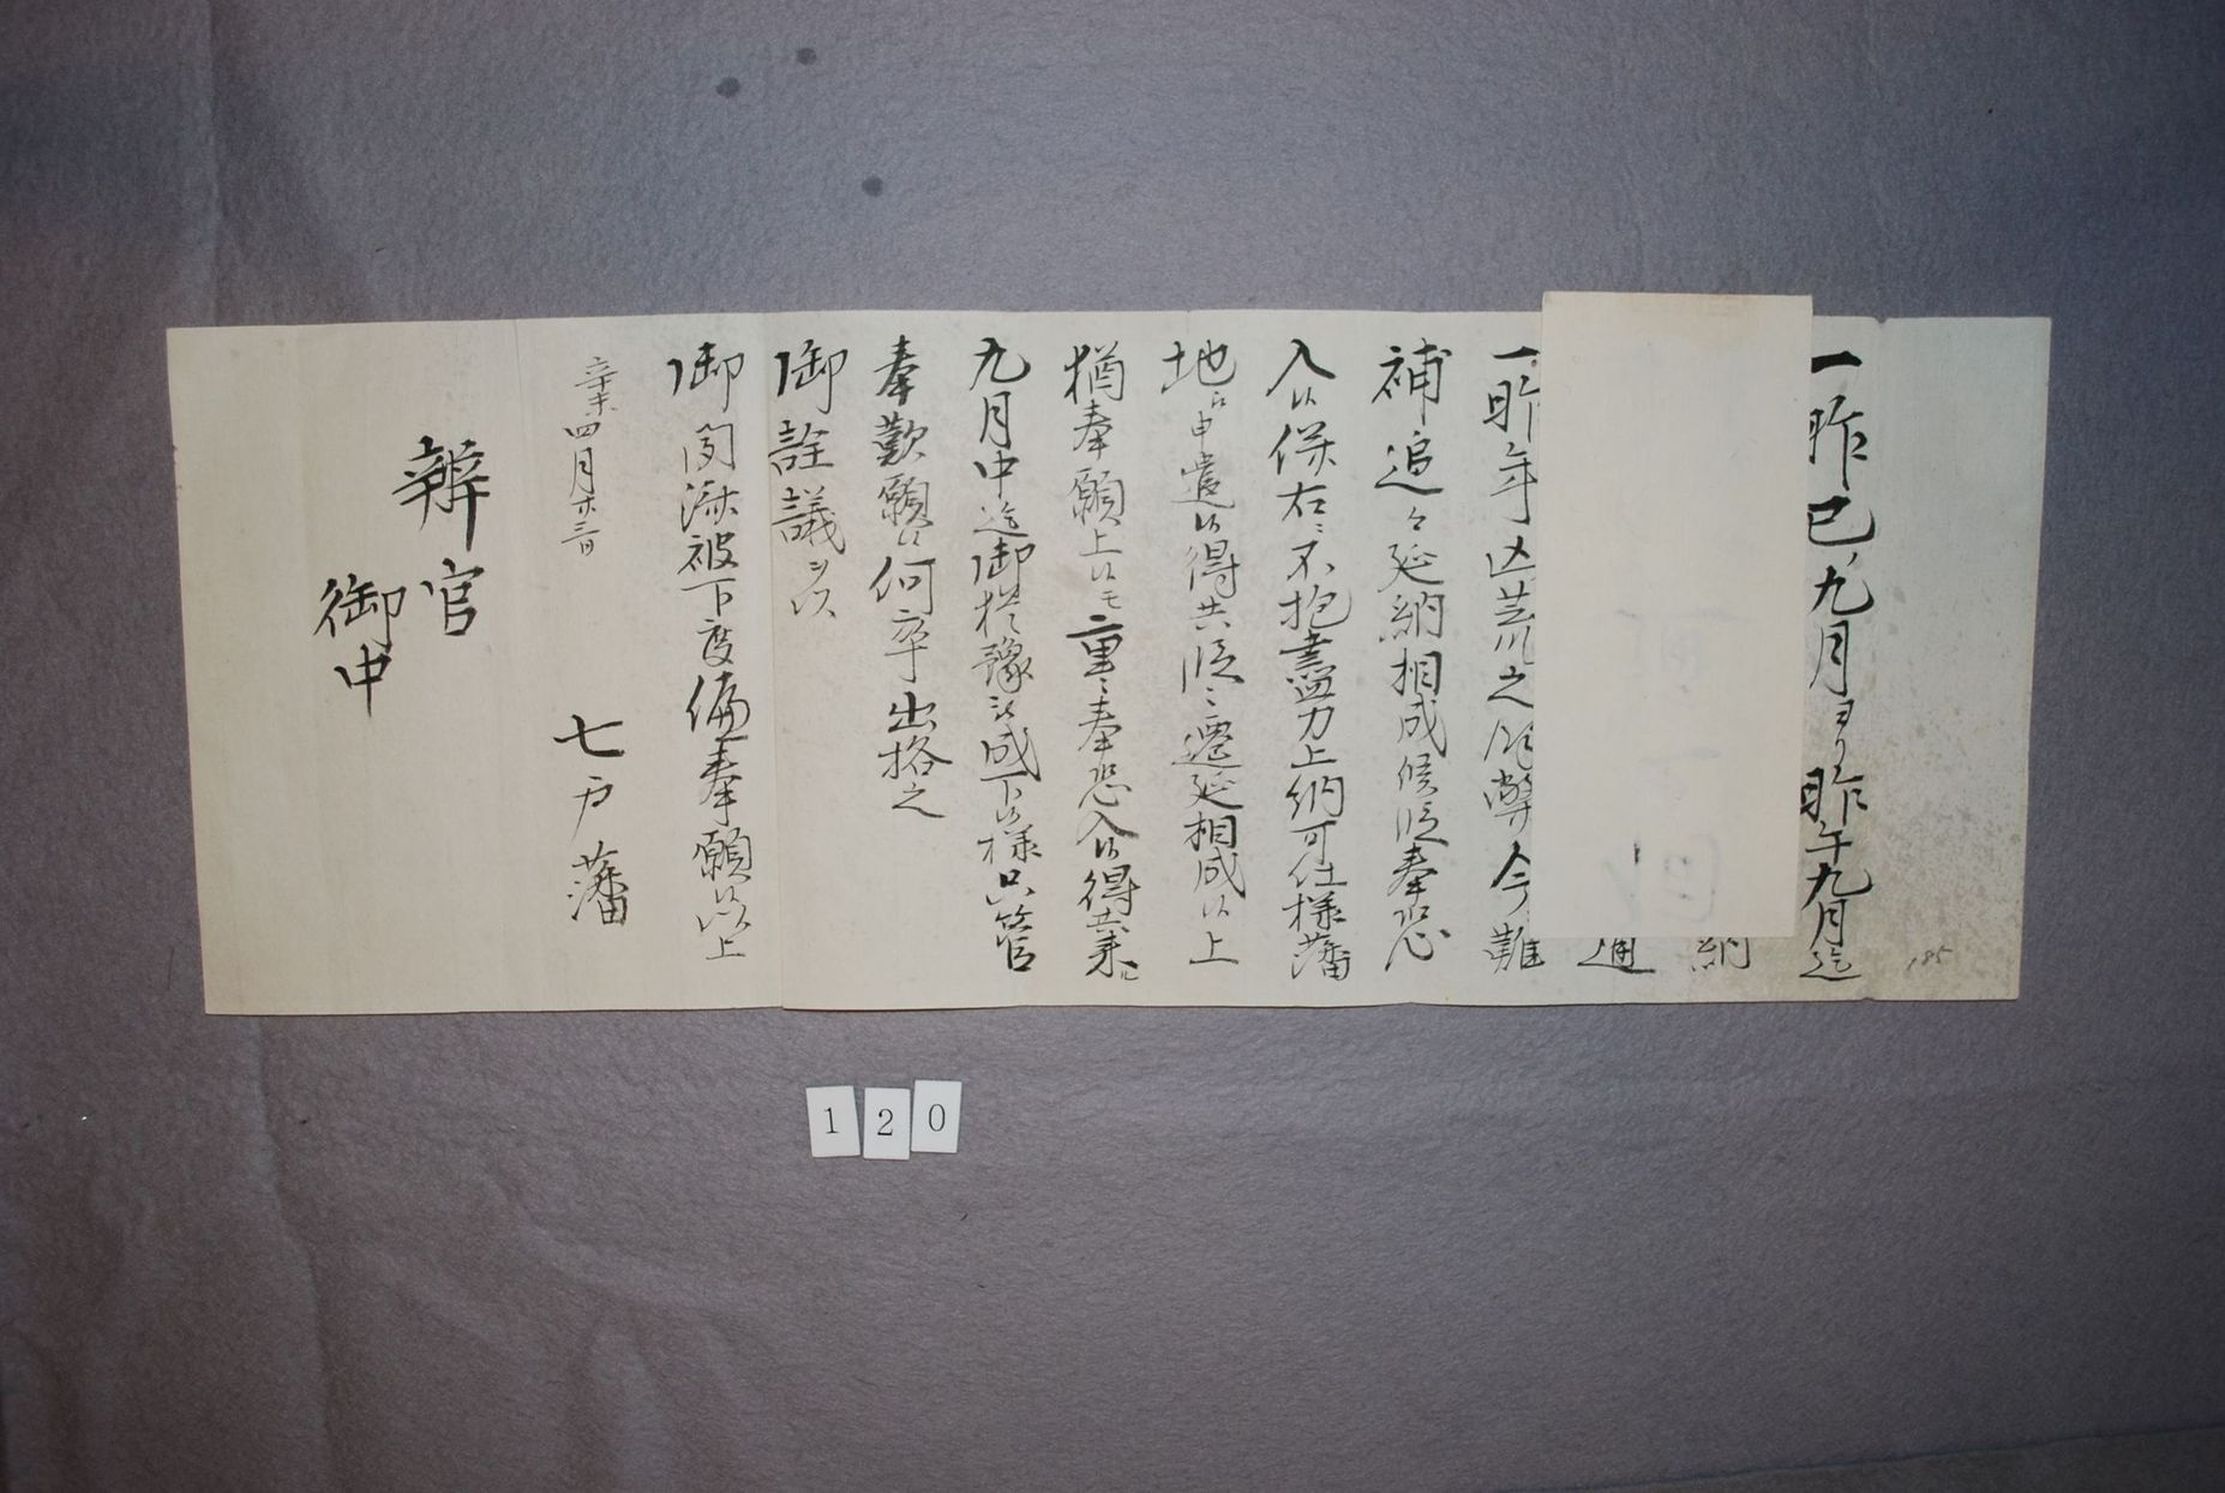 185
一昨巳九月ヨリ昨午九月迄
納
通
一昨年凶荒之余弊今難
補追々延納相成候段奉恐
入候併右ニ不抱尽力上納可仕様藩
地江申遣候得共段々遷延相成候上
猶奉願上候モ重々奉恐入候得共来ル
九月中迄御猶豫被成下候様只管
奉歎願候何卒出格之
御詮議ヲ以
御聞済被下度偏奉願候以上
辛未四月廿三日
七戸藩
辨官
御中
120